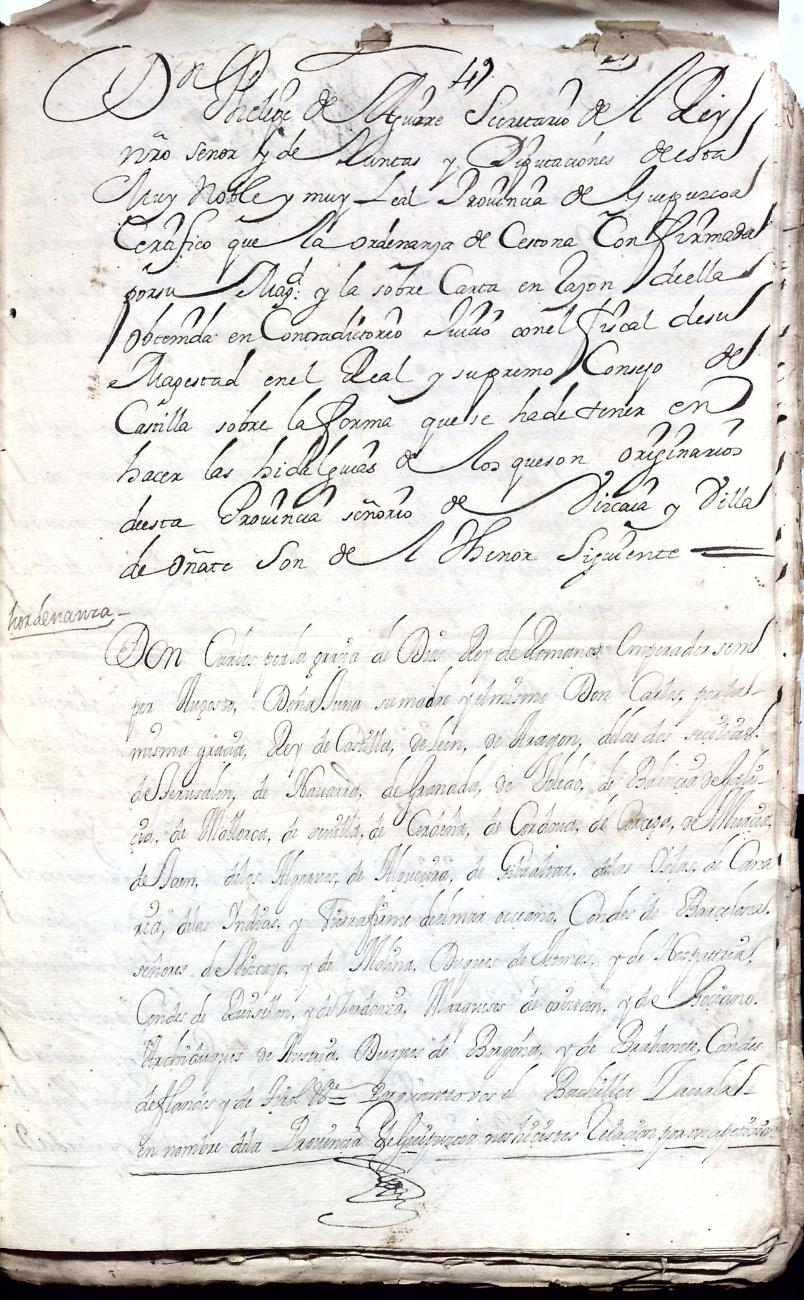 49
Don Phelipe de Aguirre Secretario de el Rey
nr̃o señor y de Juntas y Diputaciones de esta
Muy Noble y muy Leal Provincia de Guipuzcoa
Certifico que la ordenanza de Cestona Confirmada
por su Magd. y la sobre Carta en razon de ella
obtenida en Contradictorio Juicio con el fiscal de su
Magestad en el Real y supremo Consejo de
Castilla sobre la forma que se ha de tener en
hacer las hidalguias de los que son originarios
de esta Provincia señorio de Vizcaia y Villa
de Oñate son de el thenor siguiente
hordenanza
Don Carlos por la gracia de Dios Rey de Romanos Emperador sem
per Augosto, Doña Juana su madre y el mismo Don Carlos, por la
misma gracia, Rey de Castilla, de Leon, de Aragon, de las dos secilias,
de Jerusalen, de Navarra, de Granada, de Toledo, de Balencia, de Gali-
cia, de Mallorca, de sevilla, de Cerdeña, de Cordova, de Corcega, de Murcia,
de Jaen, de los Algarves, de Algecira, de Gibraltar, de las Islas, de Cana
ria, de las Indias, y Tierra firme del mar occeano, Condes de Barcelona,
señores de Vizcaya, y de Molina, Duques de Atenas, y de Neopatria,
Condes de Ruisellon, y de Cerdania, Marqueses de oristan, y de Gociano,
Archiduques de Austria, Duques de Borgoña, y de Brabante, Condes
de flandes y de tirol &c.a Por quanto vos el Bachiller Zavala
en nombre de la Provincia de Guipuzcoa nos hicistes relacion por